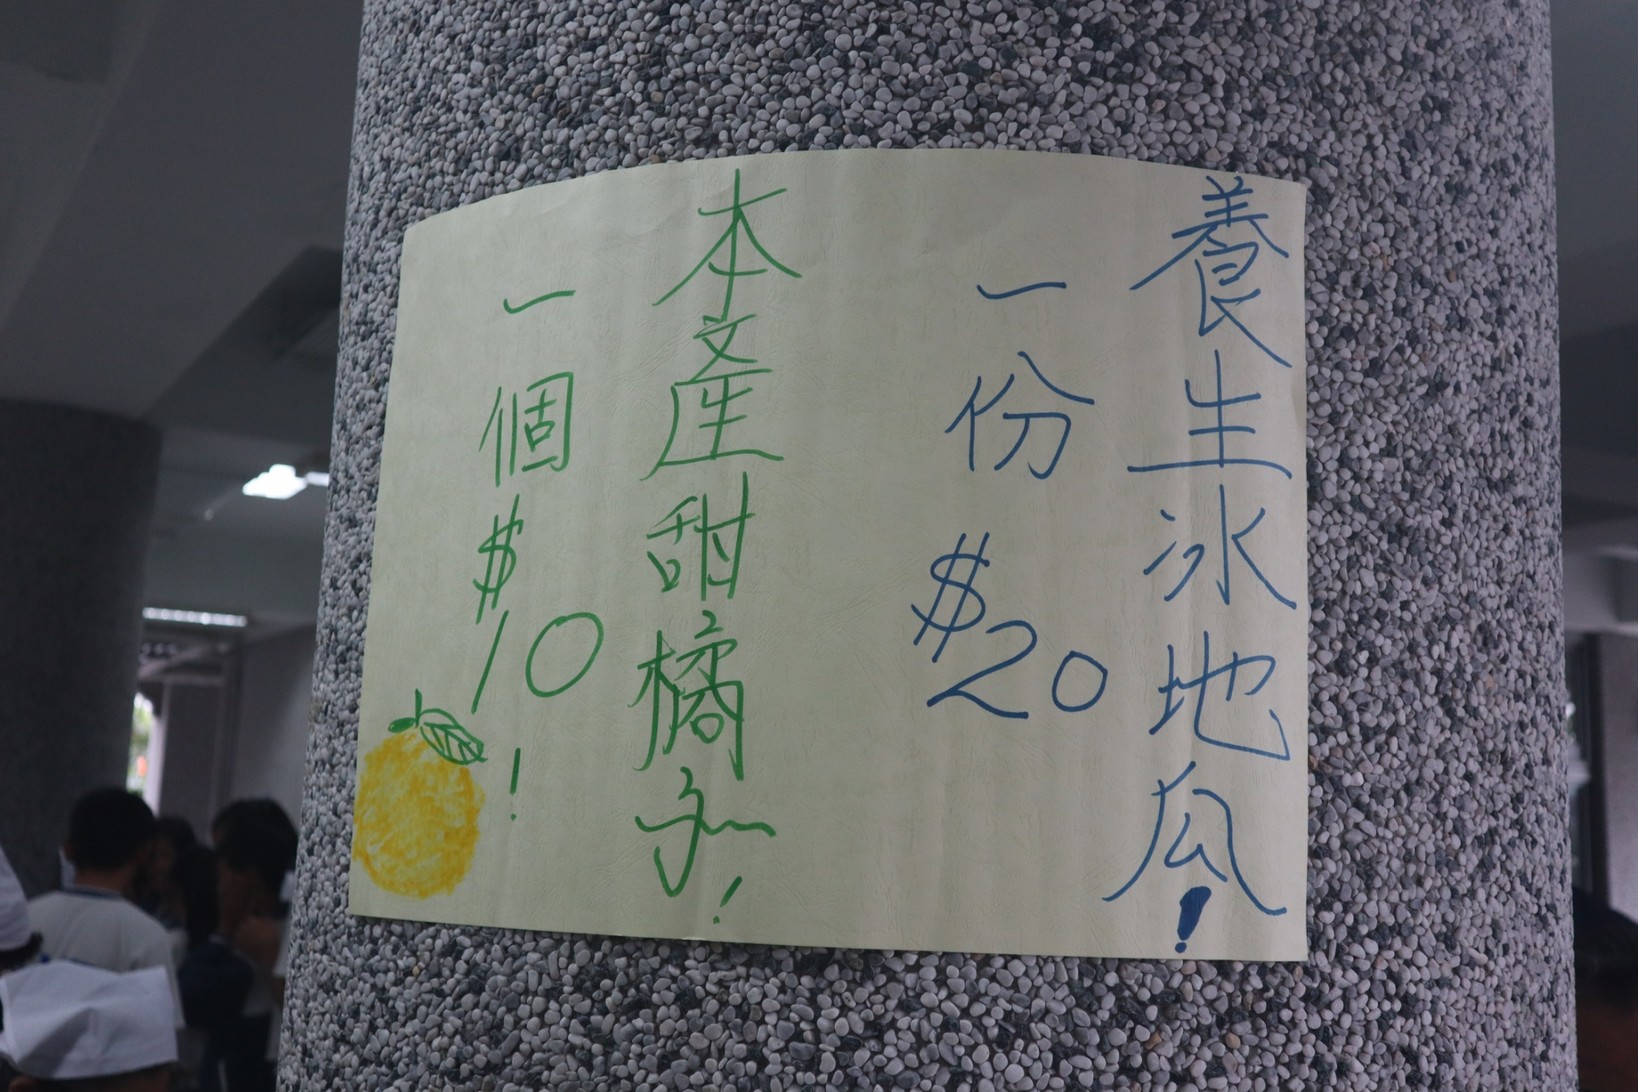 養生冰地瓜!
一份$20
本產甜橘子!
一個$10!